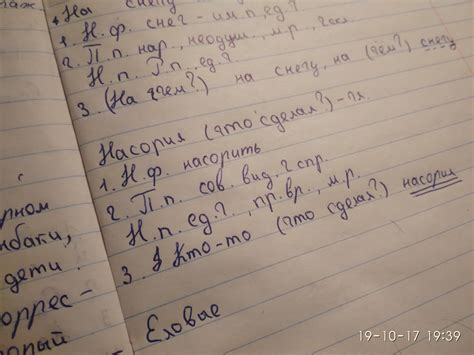 На снегу
1. Н.ф. снег - им.п, ед.?
2. П.п. нар., неодуш., м.р., 2скл.
Н.п. П.п., ед.?
3. (На чём?) на снегу, на (чём?) снегу
Насорил (что сделал?) - гл.
1. Н.ф. насорить
2. П.п. сов. вид. 2 спр.
Н.п. ед.?, пр.вр., м.р.
3. Кто-то (что сделал?) насорил
Еловые
рном
нбаки,
дети.
оррес-
орый
19-10-17 19:39